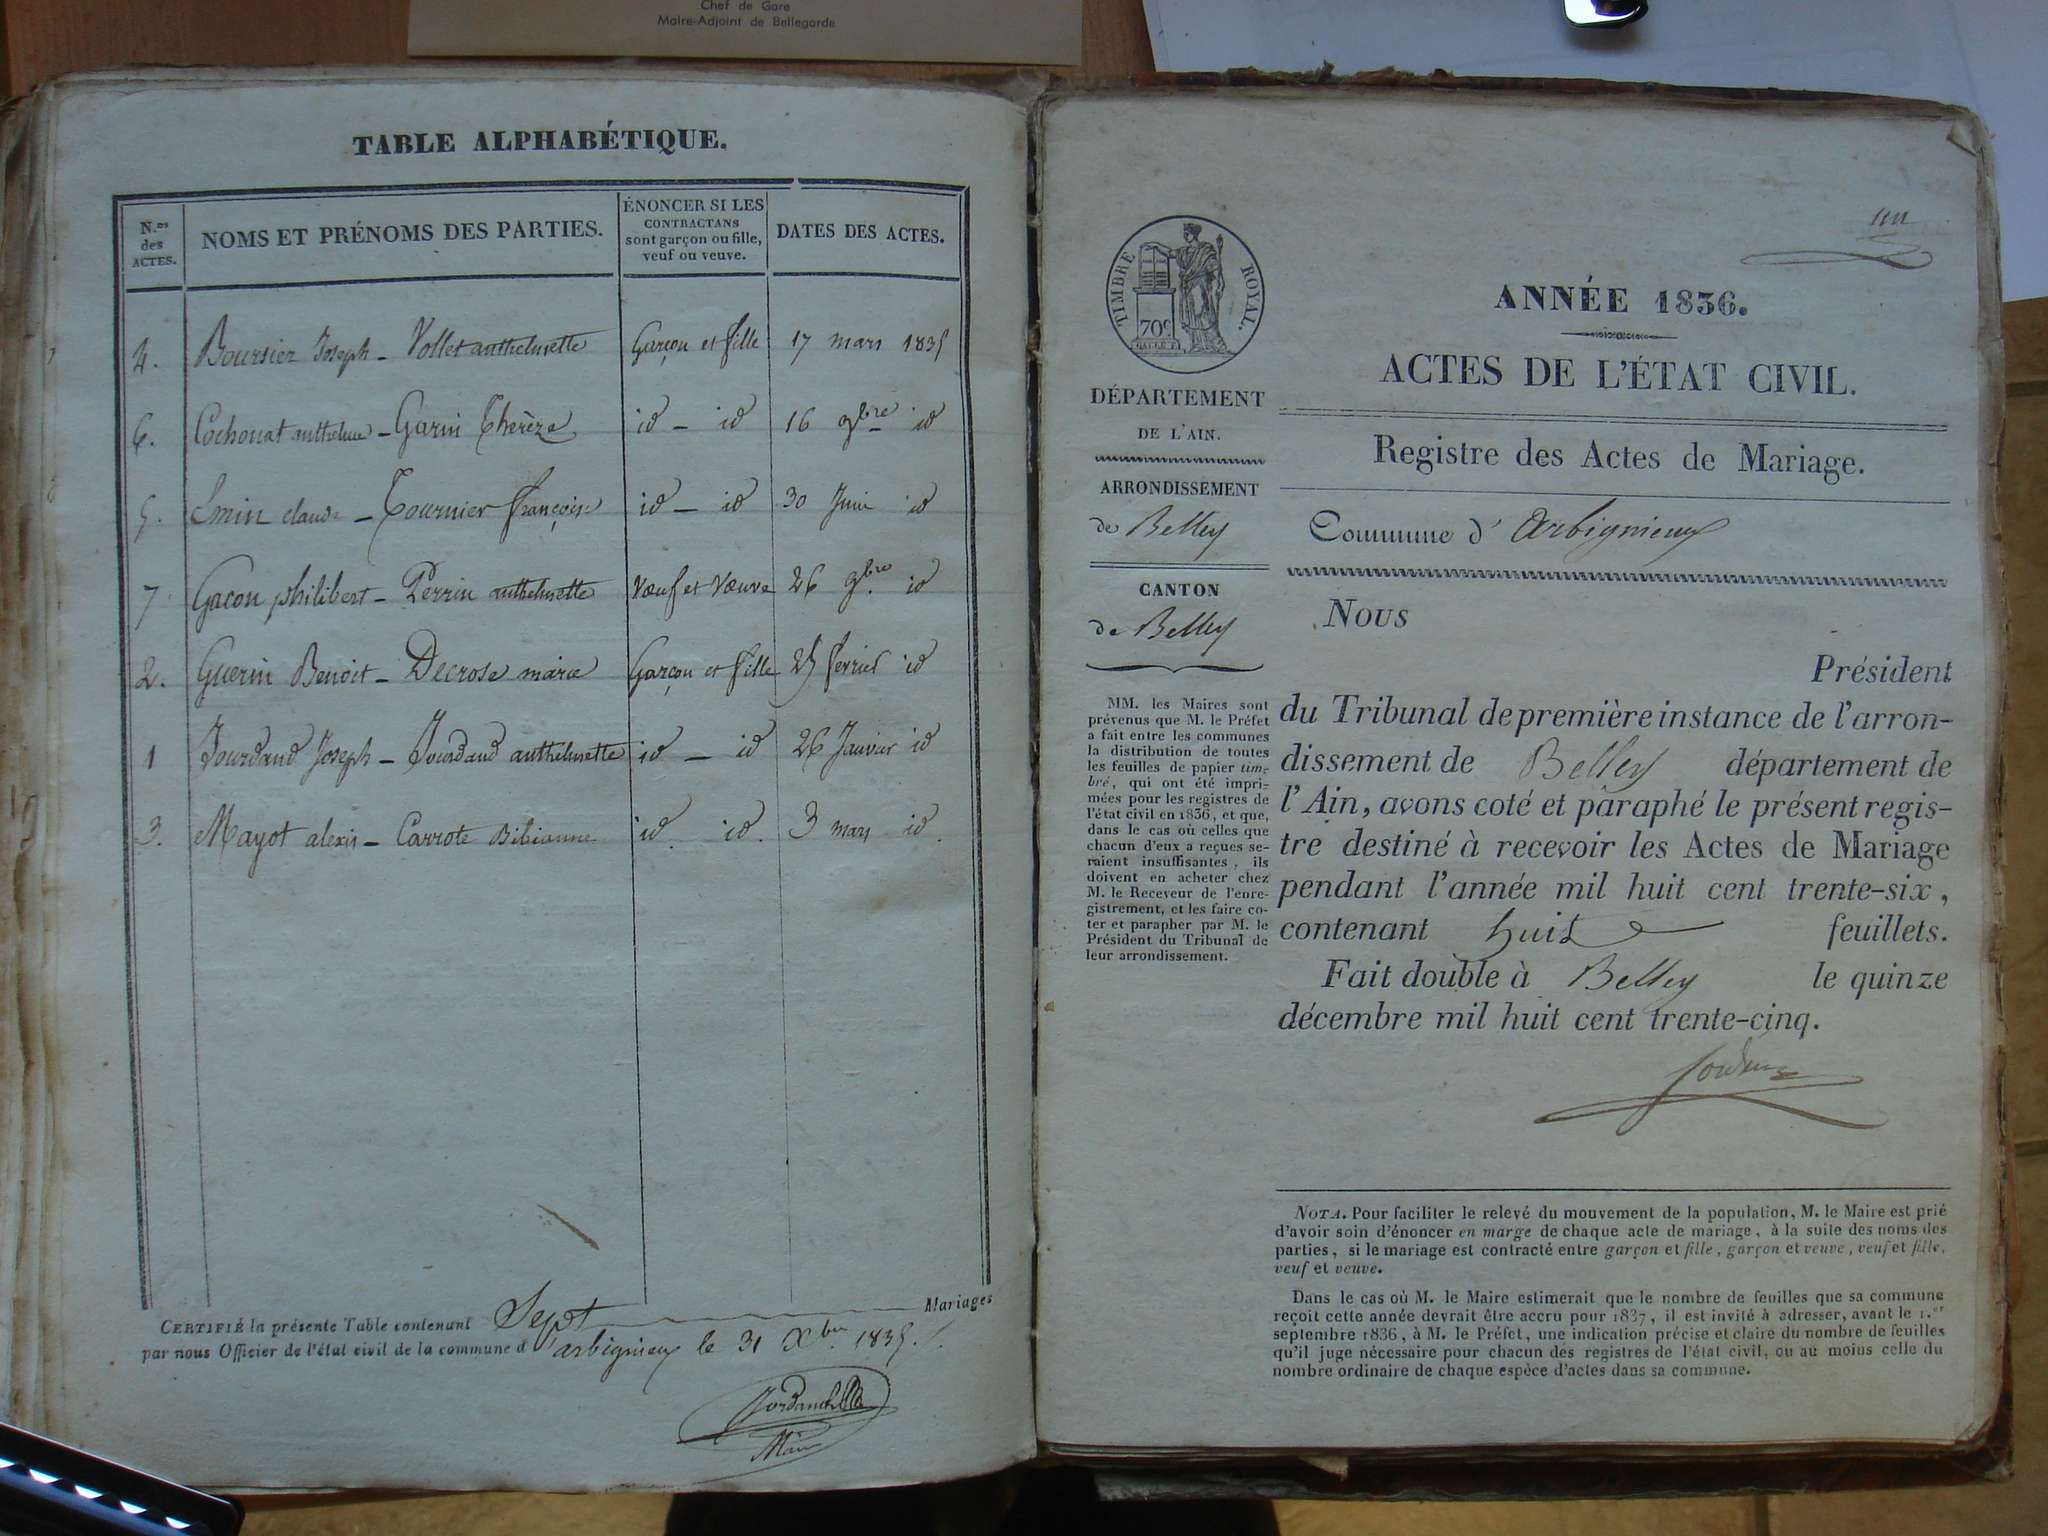 Chef de Gare
Maire-Adjoint de Bellegarde
TABLE ALPHABÉTIQUE.
N.os des ACTES.
NOMS ET PRÉNOMS DES PARTIES.
ÉNONCER SI LES CONTRACTANS sont garçon ou fille, veuf ou veuve.
DATES DES ACTES.
4. Boursier Joseph - Vollet anthelmette Garçon et fille 17 mars 1835
6. Cochonat anthelme - Garin Thérèze id - id 16 9bre id
5. Emin claude - Tournier françoise id - id 30 Juin id
7 Gacon philibert - Perrin anthelmette Vœuf et Vœuve 26 9bre id
2. Guerin Benoit - Decrose marie Garçon et fille 25 fevrier id
1 Jourdand Joseph - Jourdand anthelmette id - id 26 Janvier id
3. Mayot alexis - Carrote Bibianne id id. 3 mars id.
CERTIFIÉ la présente Table contenant Sept Mariages
par nous Officier de l'état civil de la commune d'arbignieu le 31 Xbre 1835.
Maire
un
TIMBRE ROYAL.
70c
ANNÉE 1836.
ACTES DE L'ÉTAT CIVIL.
Registre des Actes de Mariage.
Commune d'Arbignieux
DÉPARTEMENT
DE L'AIN.
ARRONDISSEMENT
de Belley
CANTON
de Belley
MM. les Maires sont
prévenus que M. le Préfet
a fait entre les communes
la distribution de toutes
les feuilles de papier tim-
bré, qui ont été impri-
mées pour les registres de
l'état civil en 1836, et que,
dans le cas où celles que
chacun d'eux a reçues se-
raient insuffisantes, ils
doivent en acheter chez
M. le Receveur de l'enre-
gistrement, et les faire co-
ter et parapher par M. le
Président du Tribunal de
leur arrondissement.
NOUS
Président
du Tribunal de première instance de l'arron-
dissement de Belley département de
l'Ain, avons coté et paraphé le présent regis-
tre destiné à recevoir les Actes de Mariage
pendant l'année mil huit cent trente-six,
contenant huit feuillets.
Fait double à Belley le quinze
décembre mil huit cent trente-cinq.
NOTA. Pour faciliter le relevé du mouvement de la population, M. le Maire est prié
d'avoir soin d'énoncer en marge de chaque acte de mariage, à la suite des noms des
parties, si le mariage est contracté entre garçon et fille, garçon et veuve, veuf et fille,
veuf et veuve.
Dans le cas où M. le Maire estimerait que le nombre de feuilles que sa commune
reçoit cette année devrait être accru pour 1837, il est invité à adresser, avant le 1.er
septembre 1836, à M. le Préfet, une indication précise et claire du nombre de feuilles
qu'il juge nécessaire pour chacun des registres de l'état civil, ou au moins celle du
nombre ordinaire de chaque espèce d'actes dans sa commune.